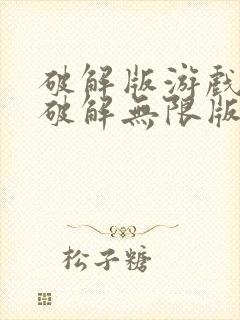 破解版游戲
破解無限版
松子糖